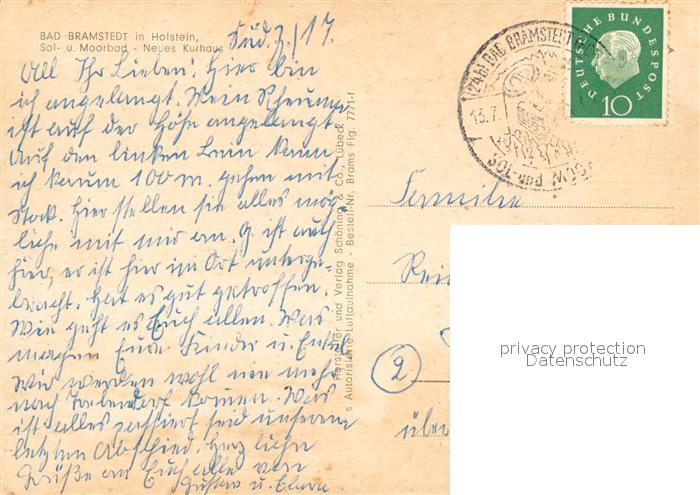 BAD BRAMSTEDT in Holstein,
Sol- u. Moorbad - Neues Kurhaus
Süd. Z./17.
All Ihr Lieben! Hier bin
ich angelangt. Mein Rheuma
ist auf der Höhe angelangt
Auf den linken Bein kann
ich kaum 100 m. gehen mit
Stock. Hier stellen sie alles mög
liche mit mir an. G. ist auch
hier, er ist hier im Ort unterge-
bracht. hat es gut getroffen.
Wie geht es Euch allen. Was
machen Eure Kinder u. Enkel
Wir werden wohl nie mehr
nach kommen. Was
ist alles passiert seid unserem
letzten Abschied. Herzliche
Grüße an Euch alle von
Gustav u. Clara
Hersteller und Verlag Schöning & Co., Lübeck
Autorisierte Luftaufnahme - Bestell-Nr. Brams Flg. 7771-f
(24b) BAD BRAMSTEDT
13.7.
SOL- und
DEUTSCHE BUNDESPOST
10
Familie
Rei
2
über
privacy protection
Datenschutz